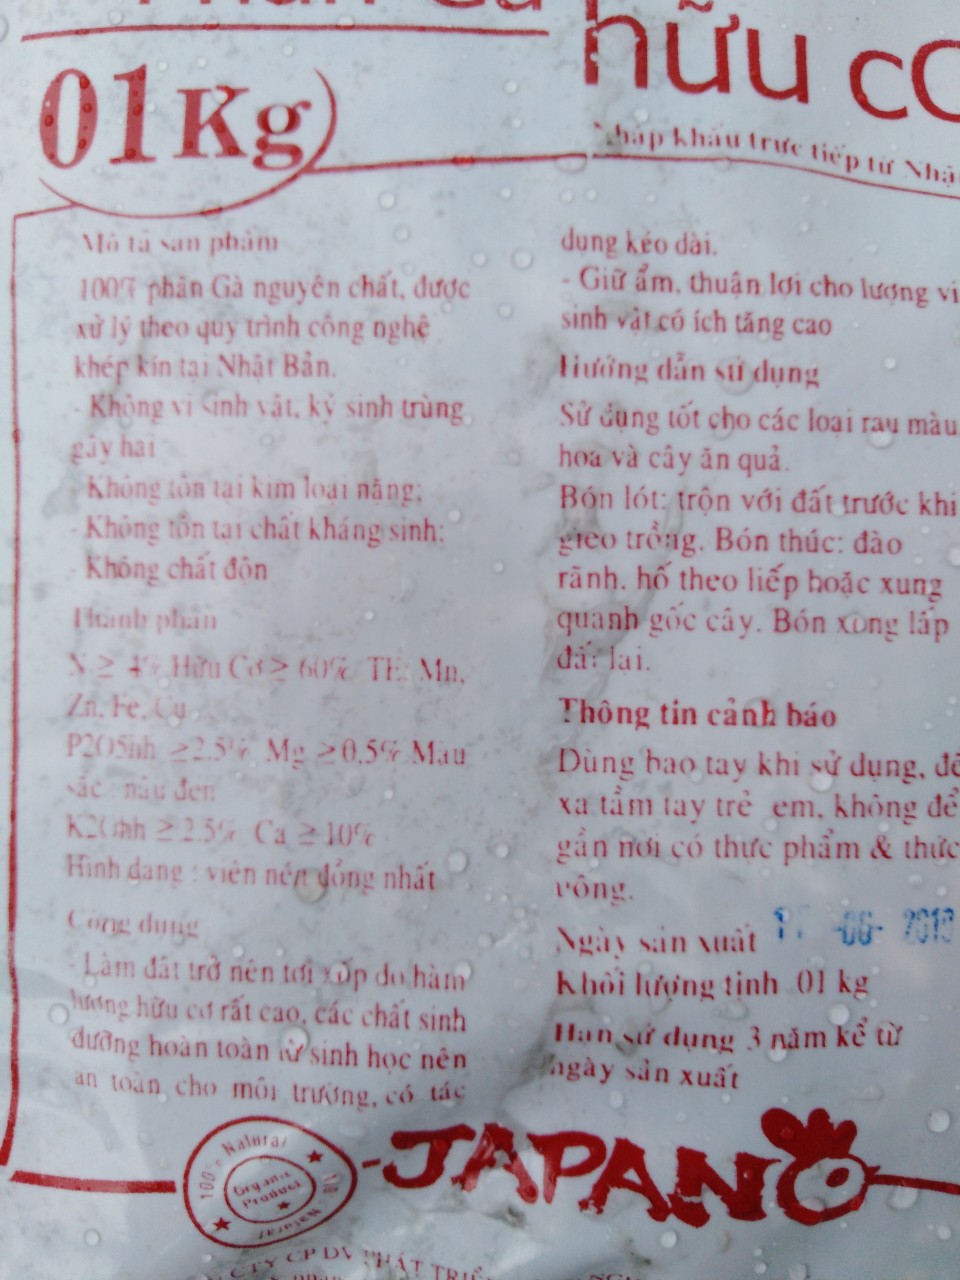 hữu cơ
01Kg
Nhập khẩu trực tiếp từ Nhậ
Mô tả sản phẩm
100% phân Gà nguyên chất, được
xử lý theo quy trình công nghệ
khép kín tại Nhật Bản.
- Không vi sinh vật, ký sinh trùng
gây hại
- Không tồn tại kim loại nặng;
- Không tồn tại chất kháng sinh;
- Không chất độn
Thành phần
N ≥ 4% Hữu Cơ ≥ 60% TE: Mn,
Zn, Fe, Cu
P2O5hh ≥2.5% Mg ≥0.5% Màu
sắc nâu đen
K2Ohh ≥2.5% Ca ≥10%
Hình dạng : viên nén đồng nhất
Công dụng
- Làm đất trở nên tơi xốp do hàm
lượng hữu cơ rất cao, các chất sinh
dưỡng hoàn toàn từ sinh học nên
an toàn cho môi trường, có tác
dụng kéo dài.
- Giữ ẩm, thuận lợi cho lượng vi
sinh vật có ích tăng cao
Hướng dẫn sử dụng
Sử dụng tốt cho các loại rau màu
hoa và cây ăn quả.
Bón lót: trộn với đất trước khi
gieo trồng. Bón thúc: đào
rãnh, hố theo liếp hoặc xung
quanh gốc cây. Bón xong lấp
đất lại.
Thông tin cảnh báo
Dùng bao tay khi sử dụng, để
xa tầm tay trẻ em, không để
gần nơi có thực phẩm & thức
uông.
Ngày sản xuất
Khối lượng tịnh 01 kg
Hạn sử dụng 3 năm kể từ
ngày sản xuất
100% Natural
Organic
Product
JAPANO
CTY CP DV PHÁT TRIỂ